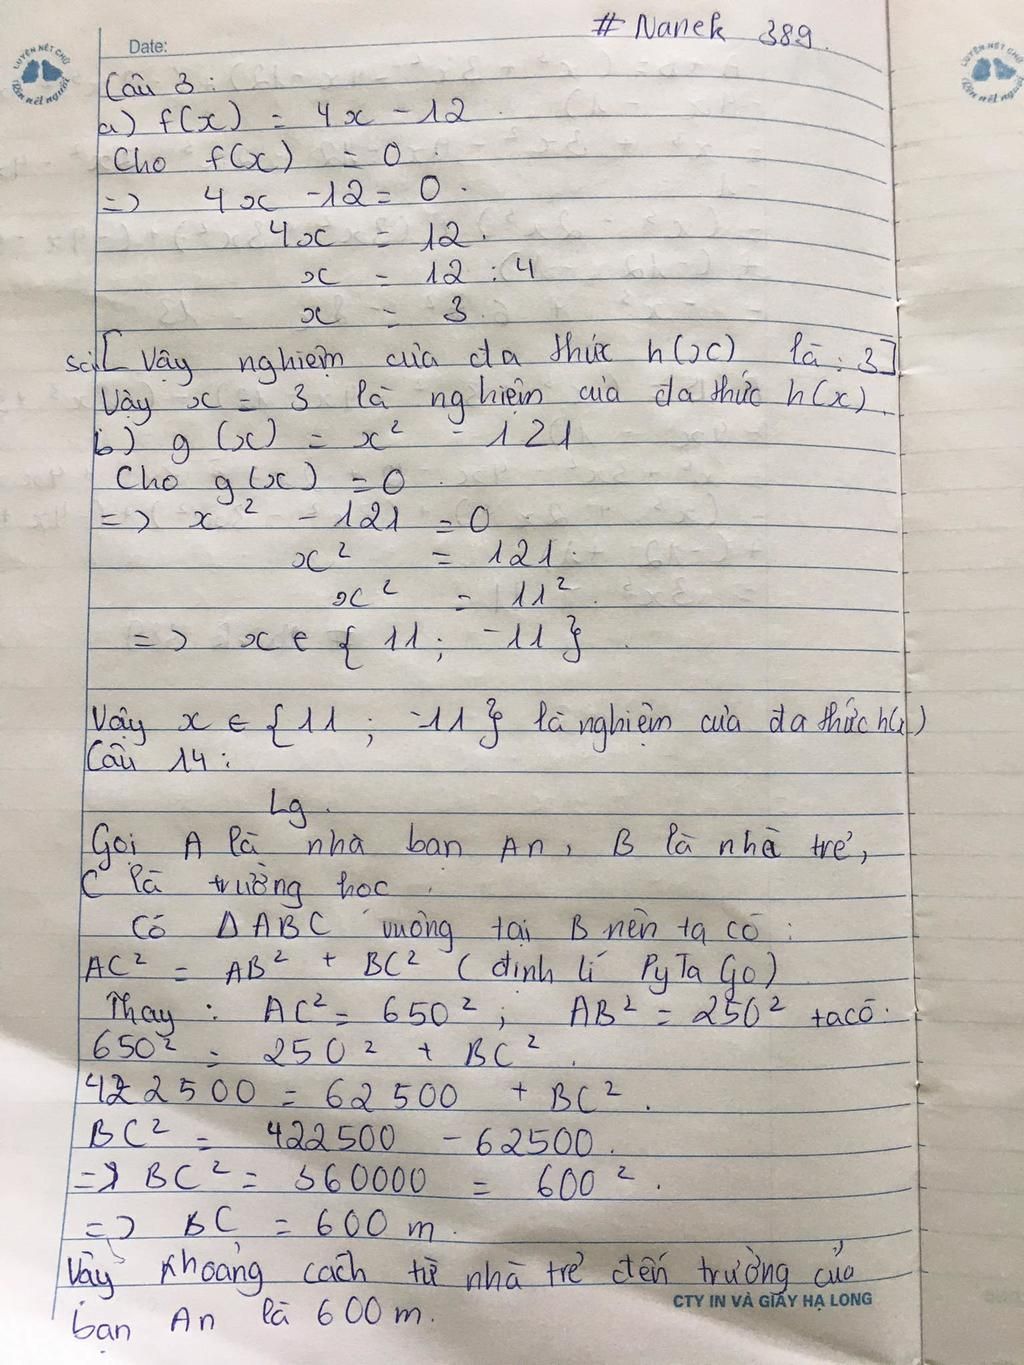 # Nanek 389.
LUYỆN NÉT CHỮ
Rèn nết người
Date:
Câu 3:
a) f(x) = 4x - 12
Cho f(x) = 0.
=> 4x - 12 = 0.
4x = 12.
x = 12 : 4
x = 3.
[ Vậy nghiệm của đa thức h(x) là : 3]
Vậy x = 3 là nghiệm của đa thức h(x).
b) g(x) = x² - 121
Cho g(x) = 0.
=> x² - 121 = 0.
x² = 121.
x² = 11².
=> x ∈ { 11 ; -11 }.
Vậy x ∈ { 11 ; -11 } là nghiệm của đa thức h(x)
Câu 14:
Lg.
Gọi A là nhà bạn An, B là nhà trẻ,
C là trường học.
Có Δ ABC vuông tại B nên ta có :
AC² = AB² + BC² ( định lí PyTaGo)
Thay : AC² = 650² ; AB² = 250² ta có:
650² = 250² + BC².
422500 = 62500 + BC².
BC² = 422500 - 62500.
=> BC² = 360000 = 600².
=> BC = 600 m.
Vậy khoảng cách từ nhà trẻ đến trường của
bạn An là 600m.
CTY IN VÀ GIẤY HẠ LONG